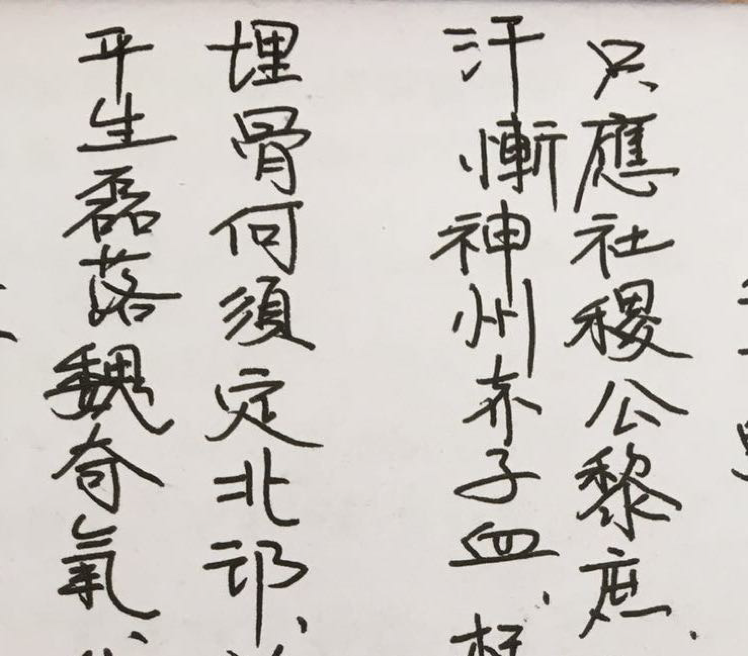 只應社稷公黎庶、
汗慚神州赤子血、
埋骨何須定北邙、
平生磊落魏奇氣、